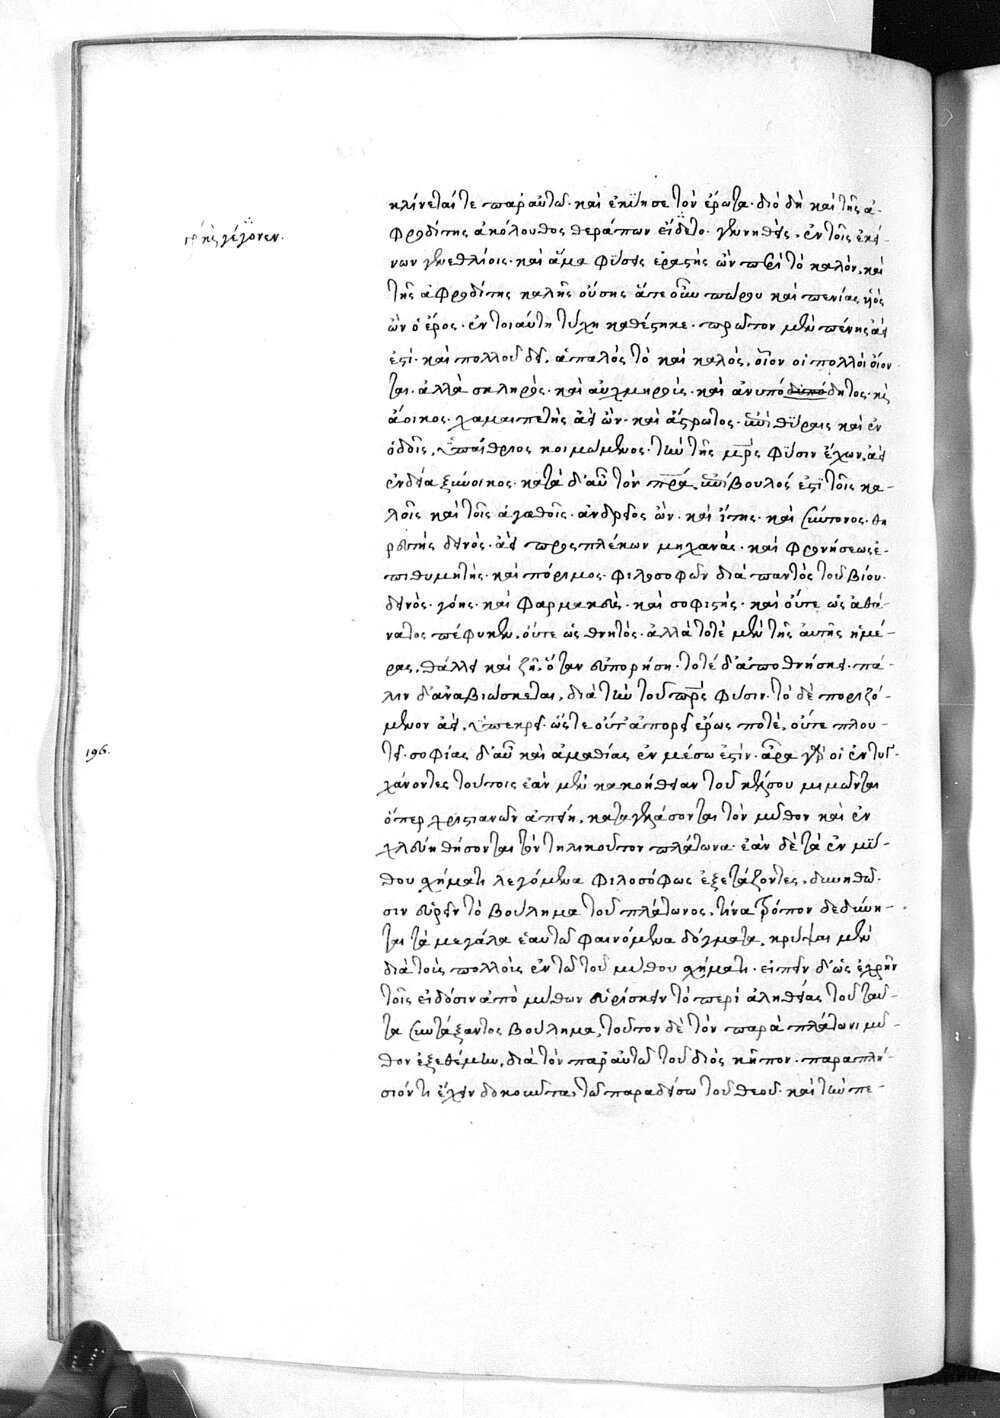 κλίνεταί τε παρ' αὐτῶ· καὶ ἐκύησε τὸν ἔρωτα· διὸ δὴ καὶ τῆς ἀ-
γρ΄ ἧς γέγονεν.
φροδίτης ἀκόλουθος θεράπων εἴδετο· γεννηθεὶς, ἐν τοῖς ἐκεί-
νων γενεθλίοις· καὶ ἅμα φύσει ἐραστὴς ὢν περὶ τὸ καλὸν, καὶ
τῆς ἀφροδίτης καλῆς οὔσης, ἅτε οὖν πώρου καὶ πενίας υἱὸς
ὢν ὁ ἔρος· ἐν τοιαύτη τύχη καθέστηκε· πρῶτον μὲν πένης ἀεὶ
ἐστί· καὶ πολλοῦ δεῖ, ἁπαλὸς τὸ καὶ καλὸς, οἷον οἱ πολλοὶ οἴον
ται· ἀλλὰ σκληρὸς· καὶ αὐχμηρὸς· καὶ ἀνυπόδητος· καὶ
ἄοικος· χαμαιπετὴς ἀεὶ ὢν· καὶ ἄστρωτος· ἐπὶ θύραις καὶ ἐν
ὁδοῖς, ὑπαίθριος κοιμώμενος· τὴν τῆς μρς φύσιν ἔχων, ἀεὶ
ἐνδεία ξύνοικος· κατὰ δ' αὖ τὸν πρα, ἐπίβουλός ἐστι τοῖς κα-
λοῖς καὶ τοῖς ἀγαθοῖς· ἀνδρεῖος ὢν· καὶ ἴτης· καὶ σύντονος· θη
ρευτὴς δεινὸς· ἀεὶ προσπλέκων μηχανὰς· καὶ φρονήσεως ἐ-
πιθυμητὴς· καὶ πόριμος· φιλοσοφῶν διὰ παντὸς τοῦ βίου·
δεινὸς· γόης· καὶ φαρμακεὺς· καὶ σοφιστὴς· καὶ οὔτε ὡς ἀθά-
νατος πέφυκεν, οὔτε ὡς θνητὸς· ἀλλὰ τοτὲ μὲν τῆς αὐτῆς ἡμέ-
ρας, θάλλει καὶ ζῆ, ὅταν εὐπορήση· τοτὲ δ' ἀποθνήσκει· πά-
λιν δ' ἀναβιώσκεται, διὰ τὴν τοῦ πρς φύσιν· τὸ δὲ ποριζό-
μενον ἀεὶ, ὑπεκρεῖ· ὥστε οὔτ' ἀπορεῖ ἔρως ποτὲ, οὔτε πλου-
196.
τεῖ· σοφίας δ' αὖ καὶ ἀμαθίας ἐν μέσω ἐστὶν· ἆρα γὰρ οἱ ἐντυγ-
χάνοντες τούτοις ἐὰν μὲν κακοήθειαν τοῦ κέλσου μιμῶνται
ὅπερ χριστιανῶν ἀπείη, καταγελάσονται τὸν μῦθον καὶ ἐν
χλεύη θήσονται τὸν τηλικοῦτον πλάτωνα· ἐὰν δὲ τὰ ἐν μύ-
θου σχήματι λεγόμενα φιλοσόφως ἐξετάζοντες, δυνηθῶ-
σιν εὑρεῖν τὸ βούλημα τοῦ πλάτωνος, τίνα τρόπον δεδύνη-
ται τὰ μεγάλα ἑαυτῶ φαινόμενα δόγματα, κρύψαι μὲν
διὰ τοὺς πολλοὺς ἐν τῶ τοῦ μύθου σχήματι· εἰπεῖν δ' ὡς ἐχρῆν
τοῖς εἰδόσιν ἀπὸ μύθων εὑρίσκειν τὸ περὶ ἀληθείας τοῦ ταῦ-
τα συντάξαντος βούλημα, τοῦτον δὲ τὸν παρὰ πλάτωνι μῦ-
θον ἐξεθέμην, διὰ τὸν παρ' αὐτῶ τοῦ διὸς κῆπον· παραπλή-
σιόν τι ἔχειν δοκοῦντα, τῶ παραδείσω τοῦ θεοῦ· καὶ τὴν πε-